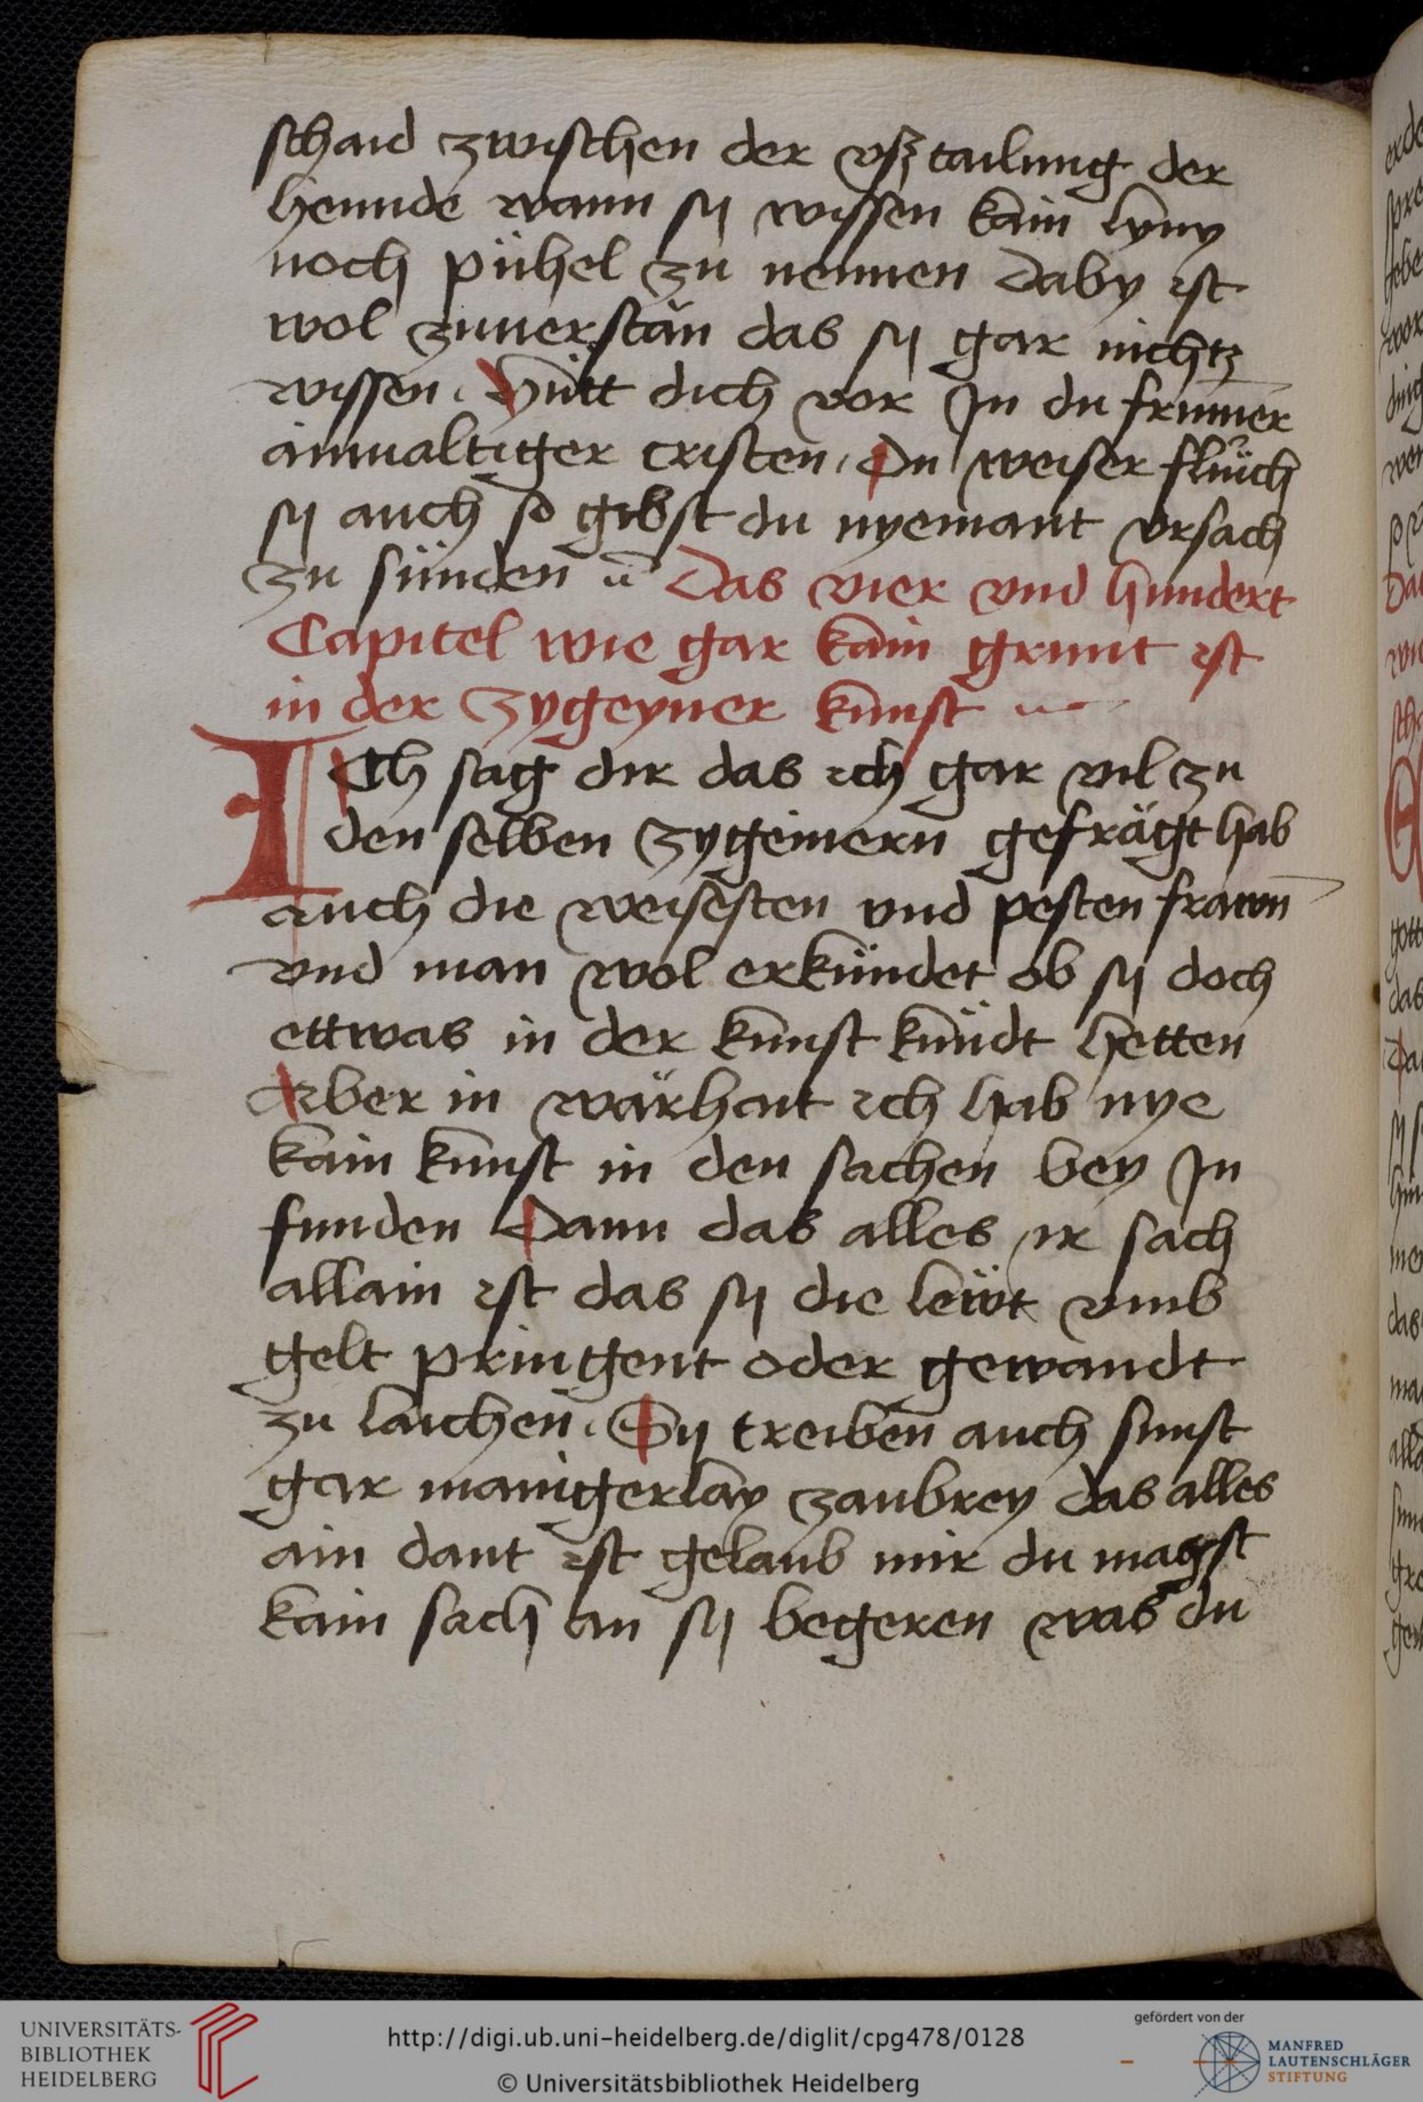 schaid zwischen der vsztailung der
hennde wann sÿ wissen kain lyny
noch pühel zu nennen Daby ist
wol zuuerstän das sÿ gar nichtz
wissen. Hütt dich vor In du frumer
ainualtiger cristen. Du weiser flüch
sÿ auch so gibst du nyemant vrsach
zu sünden Das vier vnd hundert
Capitel wie gar kain grunt ist
in der zygeyner kunst
Ich sag dir das ich gar vil zu
den selben zygeinern gefrägt hab
auch die weisesten vnd pesten frawn
vnd man wol erkündet ob sÿ doch
ettwas in der kunst kündt hetten
Aber in wärhait ich hab nye
kain kunst in den sachen bey In
funden Dann das alles ir sach
allain ist das sÿ die lewt vmb
gelt pringent oder gewandt
zu laichen. Sÿ treiben auch sunst
gar manigerlay zaubrey das alles
ain dant ist gelaub mir du magst
kain sach an sÿ begeren was du
UNIVERSITÄTS-
BIBLIOTHEK
HEIDELBERG
http://digi.ub.uni-heidelberg.de/diglit/cpg478/0128
© Universitätsbibliothek Heidelberg
gefördert von der
MANFRED
LAUTENSCHLÄGER
STIFTUNG